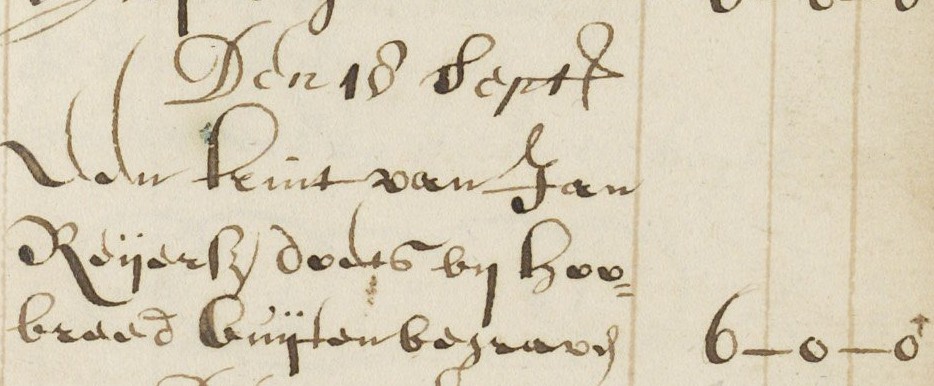 Den 18 Septr
Een kint van Jan
Reijersz doots bij hoo=
breed buijten begraven 6-0-0